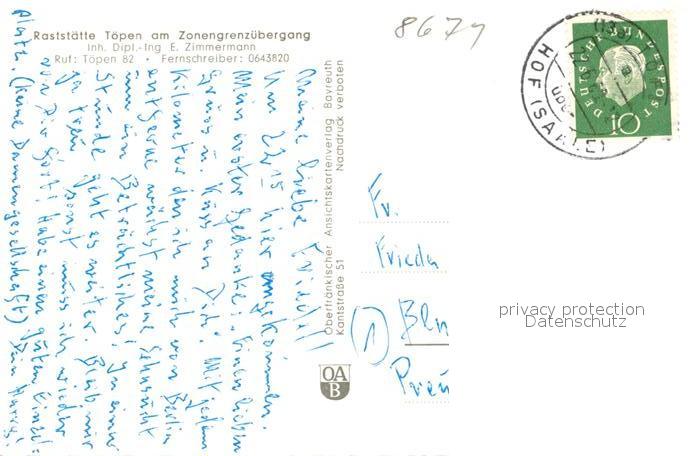 8679
Raststätte Töpen am Zonengrenzübergang
Inh. Dipl.-Ing E. Zimmermann
Ruf: Töpen 82 • Fernschreiber: 0643820
DEUTSCHE BUNDESPOST
10
HOF (SAALE)
Oberfränkischer Ansichtskartenverlag Bayreuth
Kantstraße 51 Nachdruck verboten
OA
B
Meine liebe
Um 22 15 hier angekommen.
Mein erster Gedanke: Einen lieben
Gruß u. Kuss an Dich. Mit jedem
Kilometer den ich mich von Berlin
entferne wächst meine Sehnsucht
um ein Beträchtliches. In einer
Stunde geht es weiter. Bleib mir
ja treu sonst muss ich wieder
vor Dir Habe einen guten
Platz. (Keine Damengesellschaft) Dein
Fr.
Frieda
1 Bln
privacy protection
Datenschutz